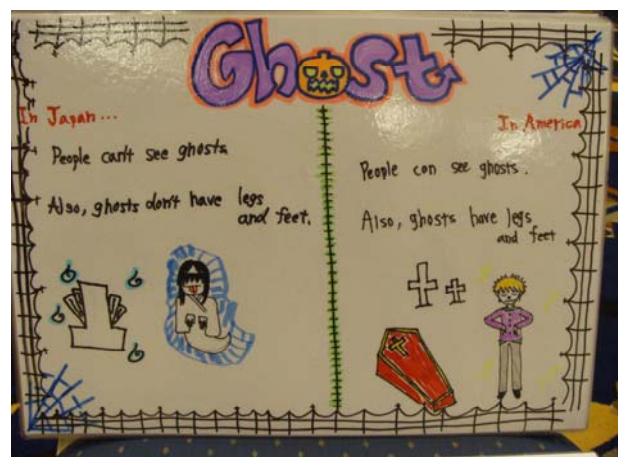 Ghost
In Japan...
People can't see ghosts.
Also, ghosts don't have legs
and feet.
In America
People can see ghosts.
Also, ghosts have legs
and feet